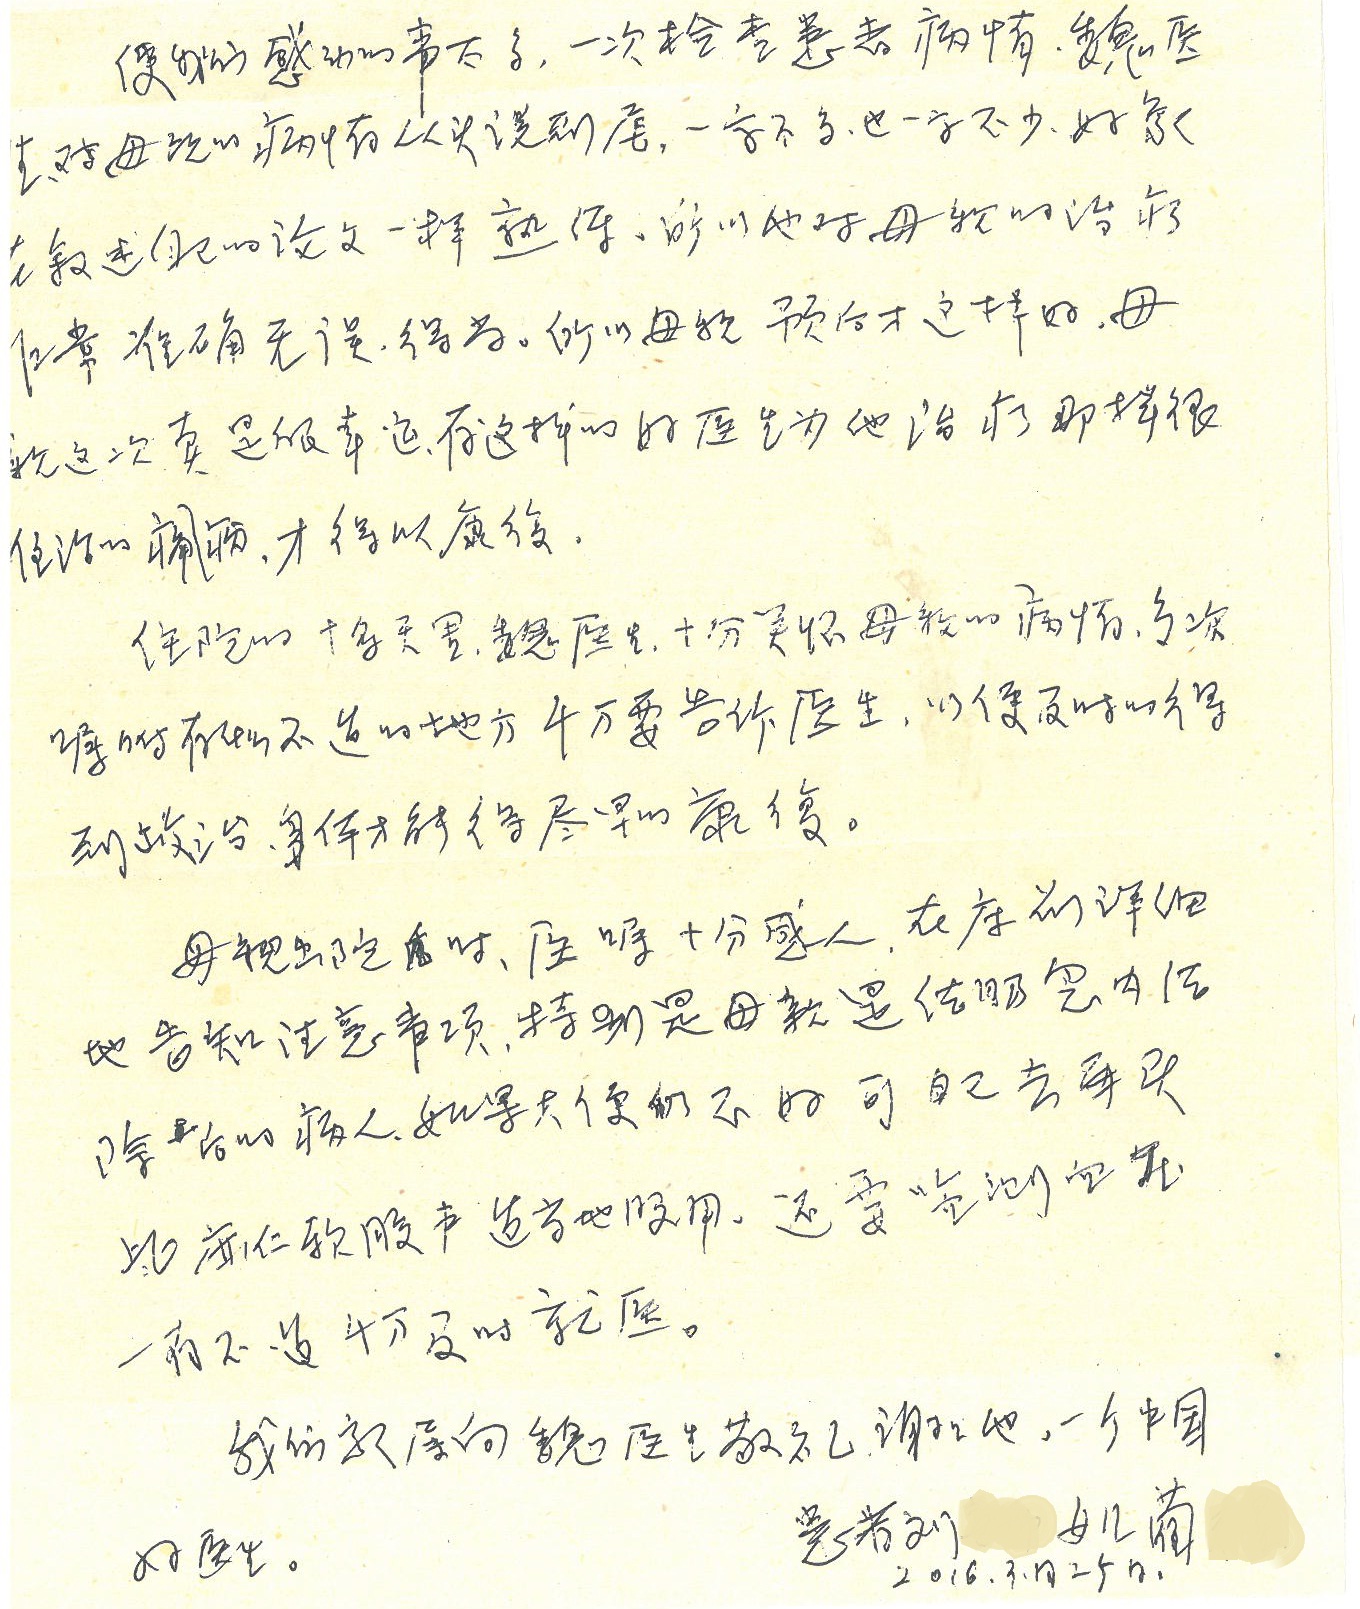 使我们感动的事太多，一次检查患者病情，魏医
生对母亲的病情从头说到尾，一字不多，也一字不少，好象
在叙述自己的论文一样熟悉，所以他对母亲的治疗
非常准确无误，得当。所以母亲预后才这样好，母
亲这次真是很幸运，有这样的好医生为他治疗那样很
难治的疾病，才得以康復。
住院的十多天里，魏医生，十分关怀母亲的病情，多次
嘱咐有什么不适的地方千万要告诉医生，以便及时的得
到救治，身体才能得尽早的康復。
母親出院时，医嘱十分感人，在床前详细
地告知注意事项，特别是母亲是结肠息肉
除后的病人，如果大便仍不好可自己去再买
点麻仁软胶囊适当地服用。还要监测血压
一有不适千万及时就医。
我们家属向魏医生敬礼，谢谢他，一个中国
好医生。
患者刘 女儿蔺
2016.3.月25日.